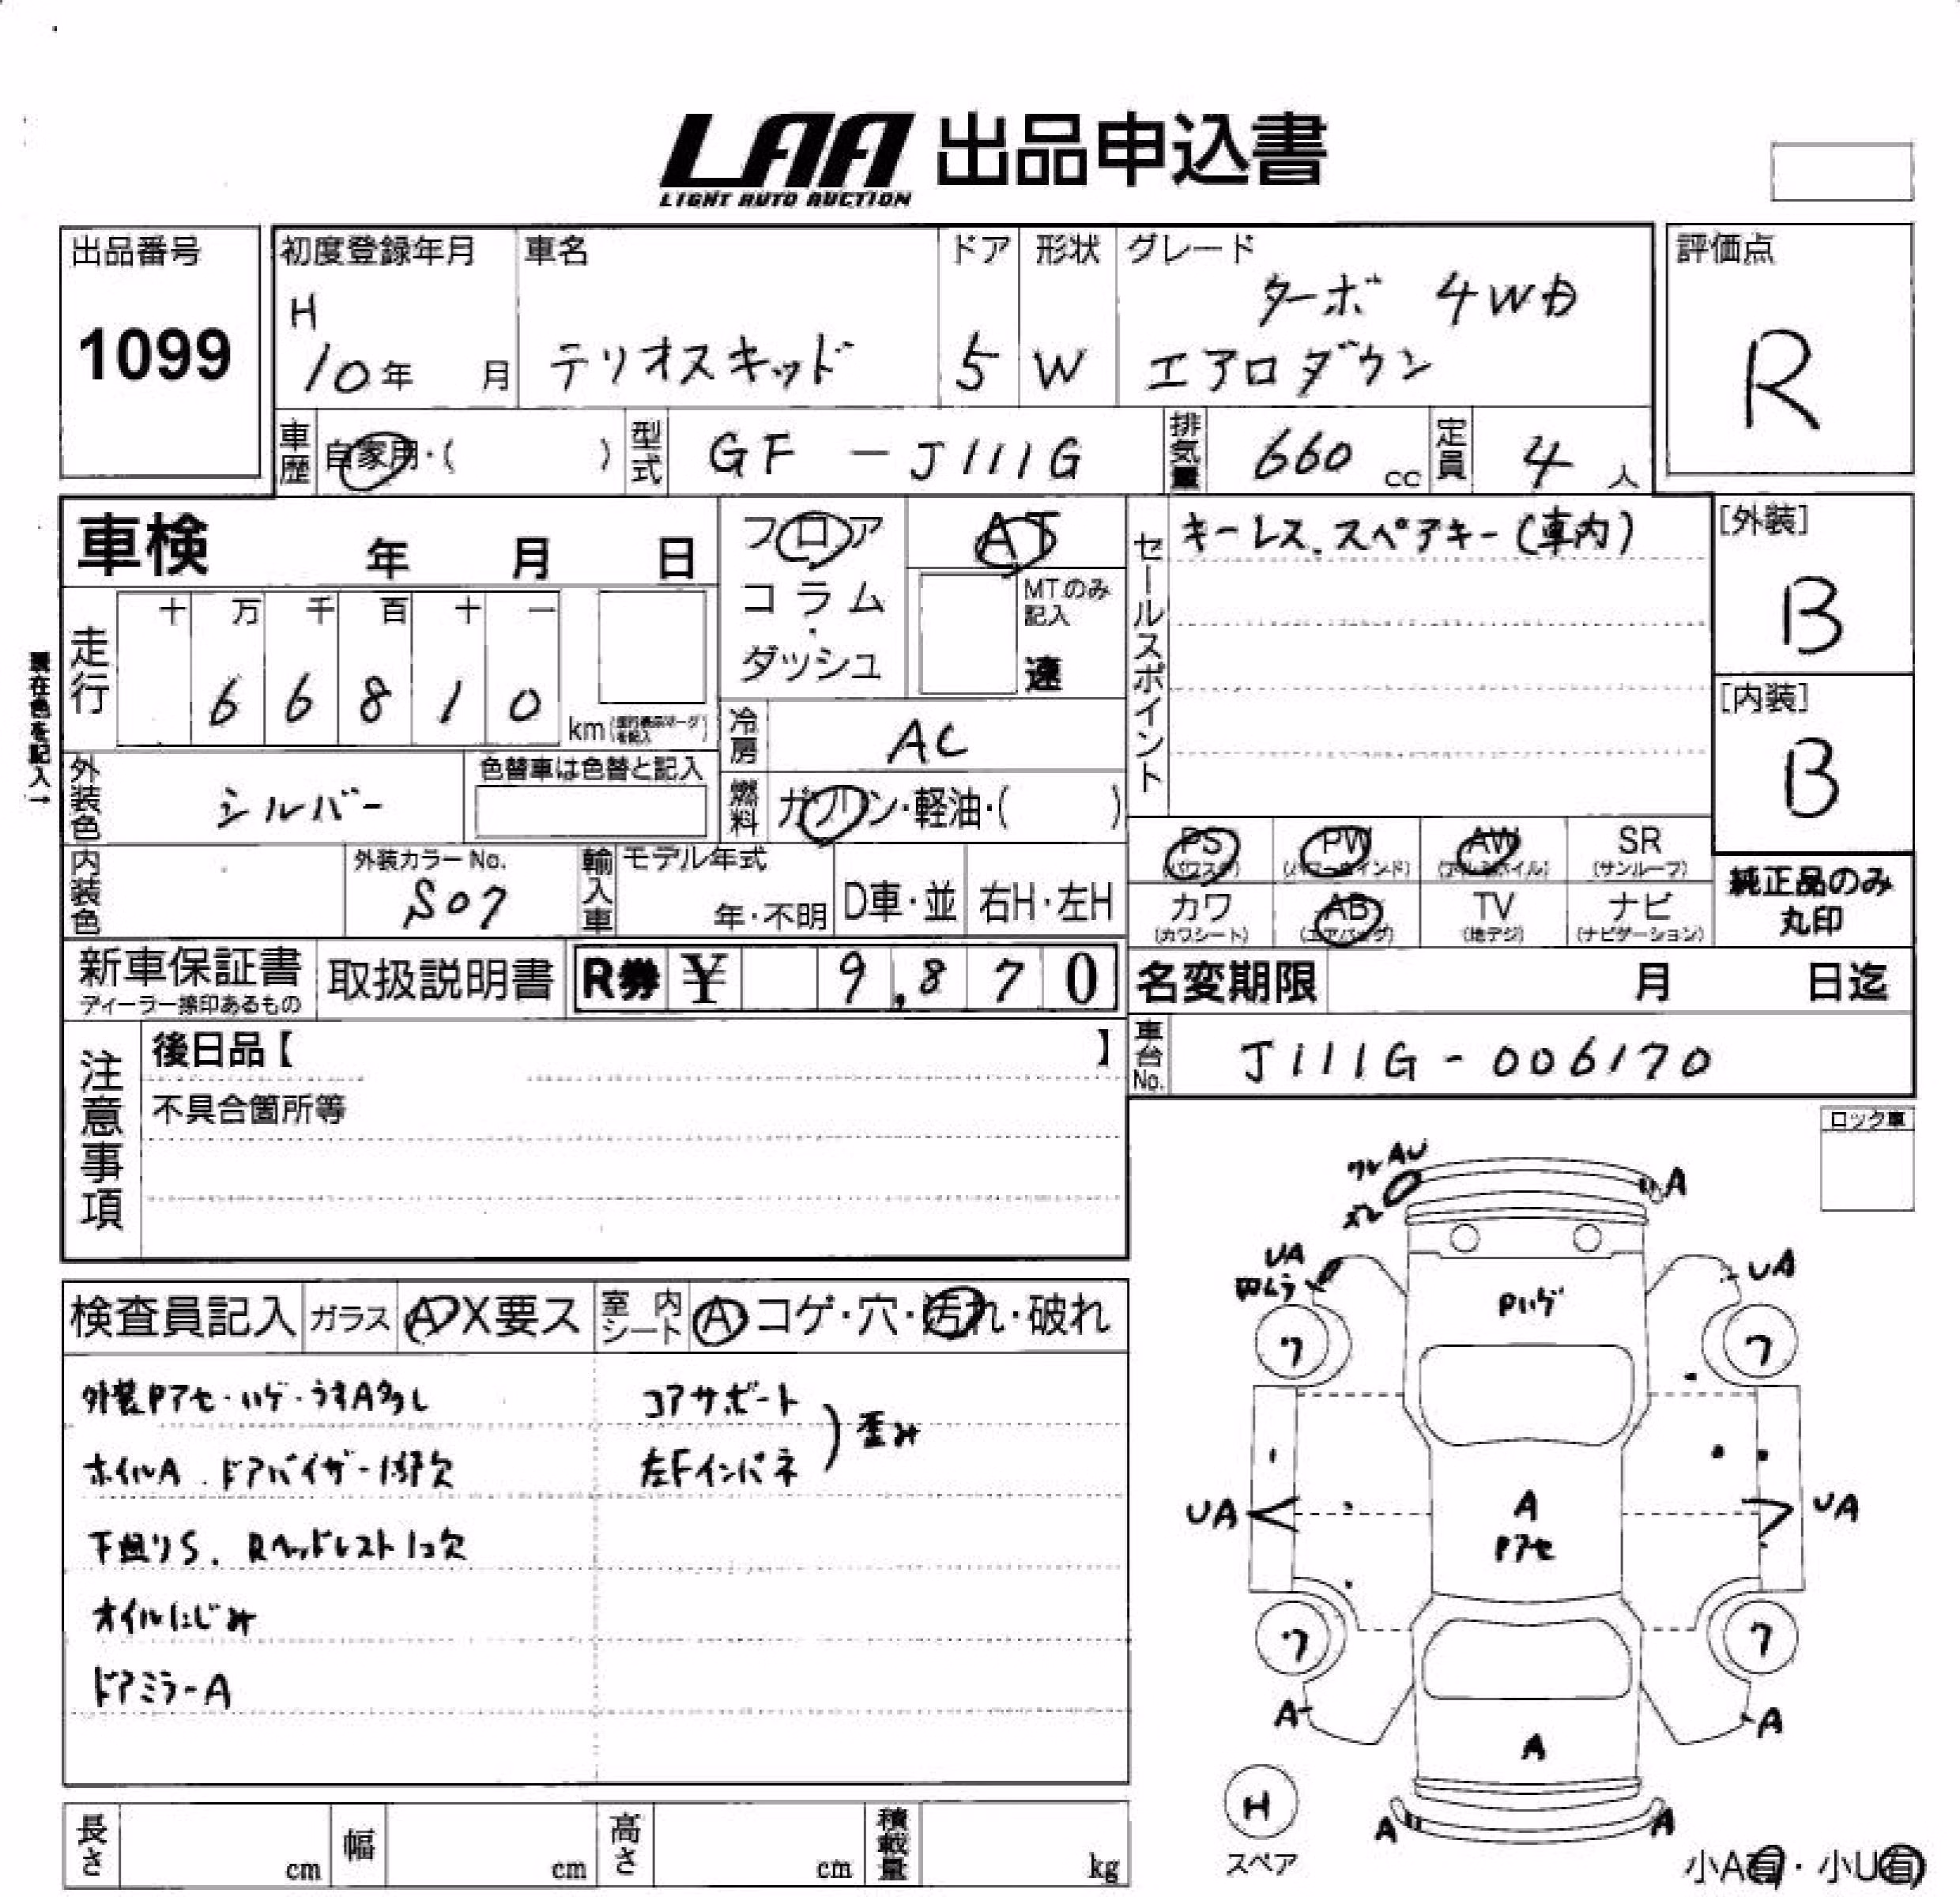 LAA 出品申込書
LIGHT AUTO AUCTION
出品番号
1099
初度登録年月
H
10年 月
車名
テリオスキッド
ドア
5
形状
W
グレード
ターボ 4WD
エアロダウン
評価点
R
車歴 自家用・( )
型式 GF-J111G
排気量 660 cc
定員 4 人
車検 年 月 日
現在色を記入→
走行
十 万 千 百 十 一
6 6 8 1 0
km
外装色 シルバー
色替車は色替と記入
内装色
外装カラーNo.
S07
フロア
コラム
・
ダッシュ
AT
MTのみ
記入
速
冷房 AC
燃料 ガソリン・軽油・( )
輸入車
モデル年式
年・不明
D車・並
右H・左H
セールスポイント
キーレス、スペアキー(車内)
[外装]
B
[内装]
B
PS
(パワステ)
PW
(パワーウインド)
AW
(アルミホイル)
SR
(サンルーフ)
カワ
(カワシート)
AB
(エアバッグ)
TV
(地デジ)
ナビ
(ナビゲーション)
純正品のみ
丸印
新車保証書
ディーラー捺印あるもの
取扱説明書
R券 ¥ 9,870
名変期限 月 日迄
車台No. J111G-006170
注意事項
後日品【 】
不具合箇所等
ロック車
検査員記入
ガラス
A X要ス
室内シート
A コゲ・穴・汚れ・破れ
外装Pアセ・ハゲ・うすA多し
ホイルA ドアバイザー1ヶ所欠
下廻りS、Rヘッドレスト1コ欠
オイルにじみ
ドアミラーA
コアサポート
左Fインパネ
歪み
ワレ AU
ズレ
A
UA
凹ムラ
UA
Pハゲ
フ
フ
UA
A
Pアセ
UA
フ
フ
A
A
A
H
スペア
A
A
小A有・小U有
長さ cm
幅 cm
高さ cm
積載量 kg